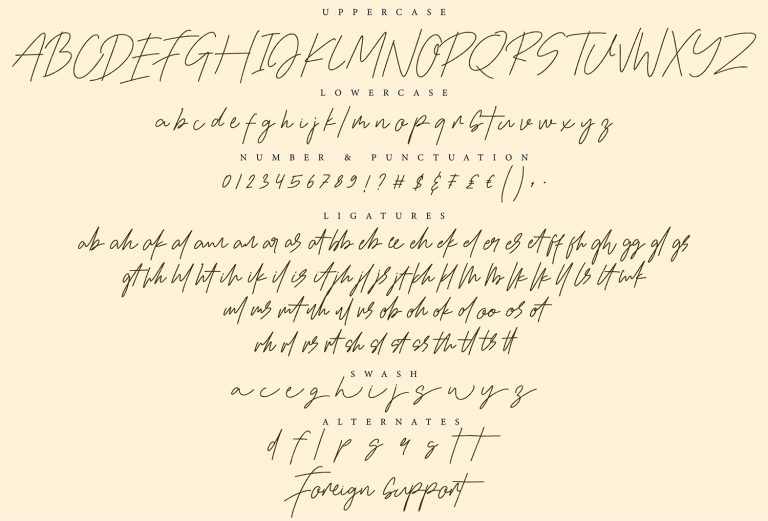 UPPERCASE
ABCDEFGHIJKLMNOPQRSTUVWXYZ
LOWERCASE
abcdefghijklmnopqrstuvwxyz
NUMBER & PUNCTUATION
0123456789!?#$
LIGATURES
ab ah ak al am an ar as at bb eb ee eh ek el er es et ff fh gh gg gl gs
gt hh hl ht ih ik il is it jh jl js jt kh kl
ul us ob oh ok ol oo os ot
rh rl rs rt sh sl st ss th tl ts tt
SWASH
a c e g h i j s w y z
ALTERNATES
d f l p g q s t t
Foreign support